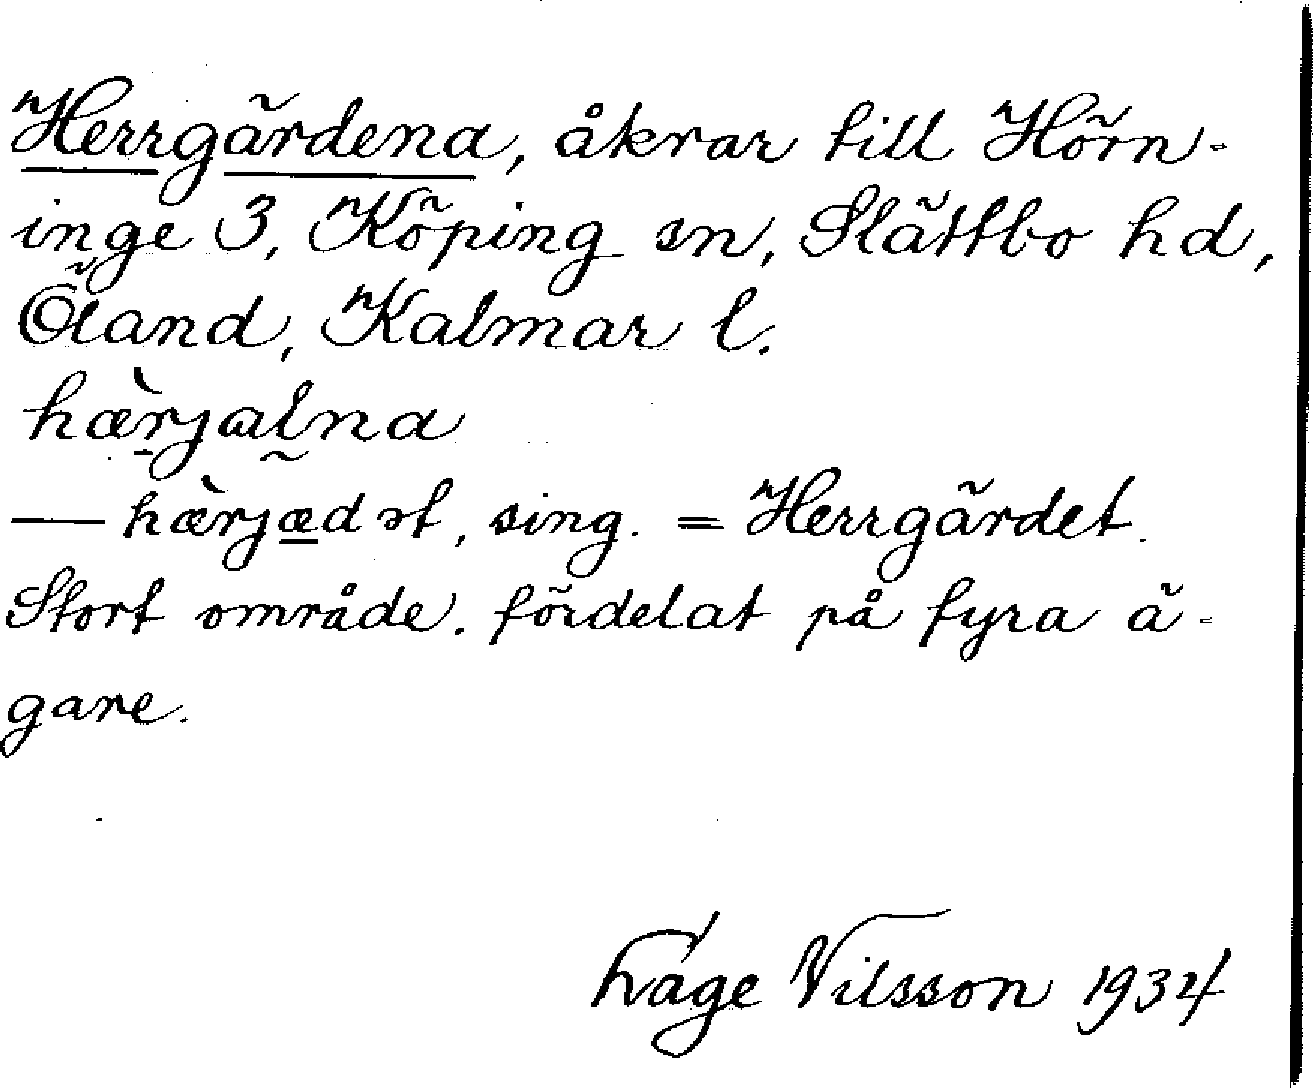 Herrgärdena, åkrar till Hörn-
inge 3, Köping sn, Slättbo hd,
Öland, Kalmar l.
— sing. = Herrgärdet.
Stort område. fördelat på fyra ä-
gare.
Nilsson 1934